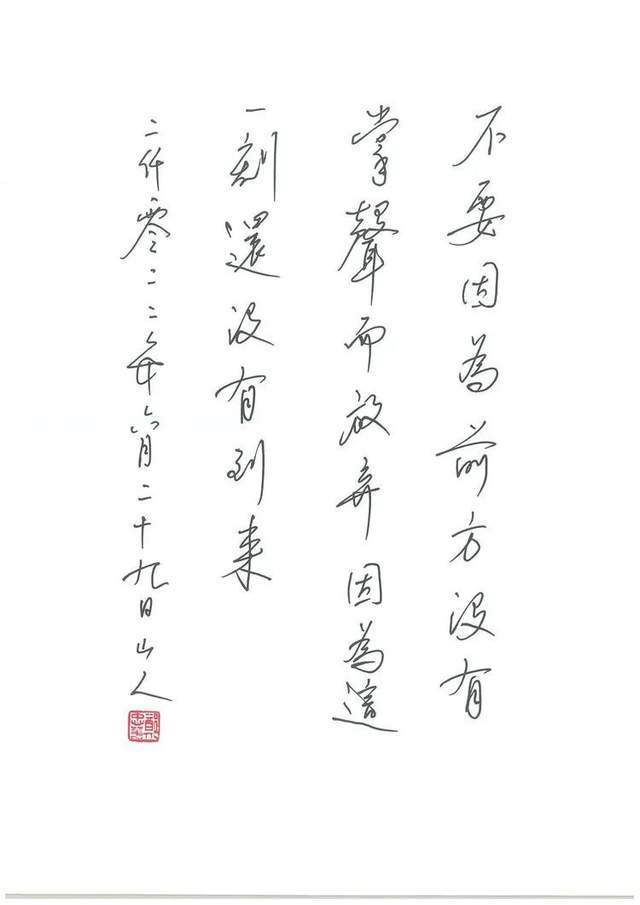 不要因為前方沒有
掌聲而放棄因為這
一刻還沒有到來
二仟零二二年六月二十九日山人